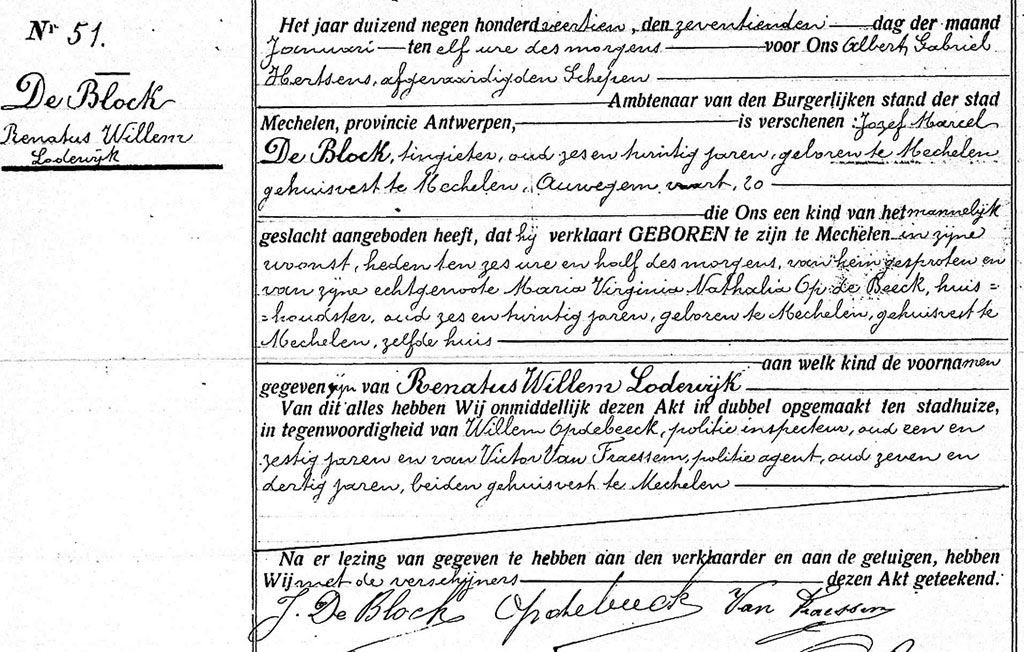 Nr 51.
De Block
Renatus Willem
Lodewijk
Het jaar duizend negen honderd veertien, den zeventienden dag der maand
Januari ten elf ure des morgens voor Ons Albert, Gabriel
Hertsens, afgevaardigden Schepen
Ambtenaar van den Burgerlijken stand der stad
Mechelen, provincie Antwerpen, is verschenen Jozef Marcel
De Block, tingieter, oud zes en twintig jaren, geboren te Mechelen
gehuisvest te Mechelen, Auwegem vaart, 20
die Ons een kind van het mannelijk
geslacht aangeboden heeft, dat hij verklaart GEBOREN te zijn te Mechelen in zijne
woonst, heden ten zes ure en half des morgens, van hem gesproten en
van zijne echtgenoote Maria Virginia Nathalia Op de Beeck, huis=
=houdster, oud zes en twintig jaren, geboren te Mechelen, gehuisvest te
Mechelen, zelfde huis
aan welk kind de voornamen
gegeven zijn van Renatus Willem Lodewijk
Van dit alles hebben Wij onmiddellijk dezen Akt in dubbel opgemaakt ten stadhuize,
in tegenwoordigheid van Willem Opdebeeck, politie inspecteur, oud een en
zestig jaren en van Victor Van Fraessem, politie agent, oud zeven en
dertig jaren, beiden gehuisvest te Mechelen
Na er lezing van gegeven te hebben aan den verklaarder en aan de getuigen, hebben
Wij met de verschijners dezen Akt geteekend.
J. De Block Opdebeeck Van Fraessem